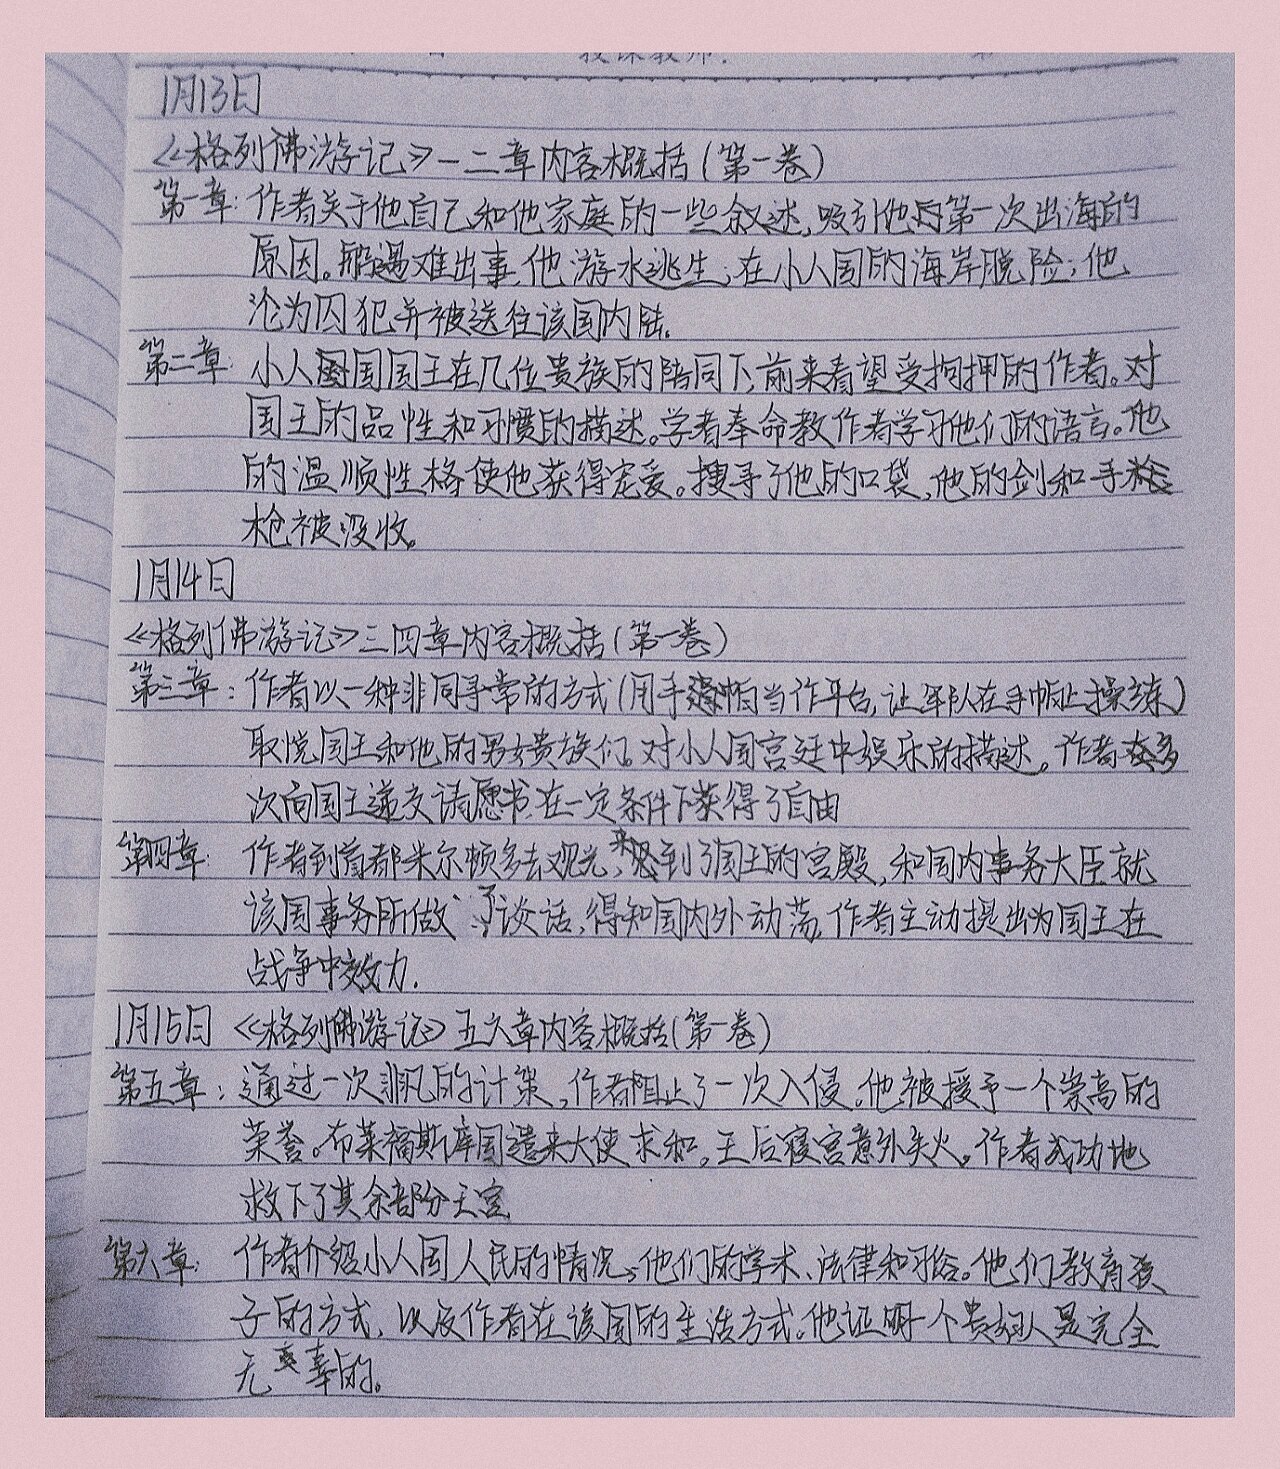 授课教师:
1月13日
《格列佛游记》一二章内容概括(第一卷)
第一章:作者关于他自己和他家庭的一些叙述,吸引他的第一次出海的
原因。船遇难出事,他游水逃生,在小人国的海岸脱险;他
沦为囚犯并被送往该国内陆。
第二章:小人国国王在几位贵族的陪同下,前来看望受拘押的作者。对
国王的品性和习惯的描述。学者奉命教作者学习他们的语言。他
的温顺性格使他获得宠爱。搜寻了他的口袋,他的剑和手
枪被没收。
1月14日
《格列佛游记》三四章内容概括(第一卷)
第三章:作者以一种非同寻常的方式(用手帕当作平台,让军队在手帕上操练)
取悦国王和他的男女贵族们。对小人国宫廷中娱乐的描述。作者多
次向国王递交请愿书,在一定条件下获得了自由
第四章:作者到首都米尔顿多去观光,来到了国王的宫殿,和国内事务大臣就
该国事务所做了谈话,得知国内外动荡,作者主动提出为国王在
战争中效力.
1月15日《格列佛游记》五六章内容概括(第一卷)
第五章:通过一次非凡的计策,作者阻止了一次入侵。他被授予一个崇高的
荣誉。布莱福斯库国遣来大使求和。王后寝宫意外失火。作者成功地
救下了其余部分王宫
第六章:作者介绍小人国人民的情况,他们的学术、法律和习俗。他们教育孩
子的方式,以及作者在该国的生活方式。他证明一个贵妇人是完全
无辜的。